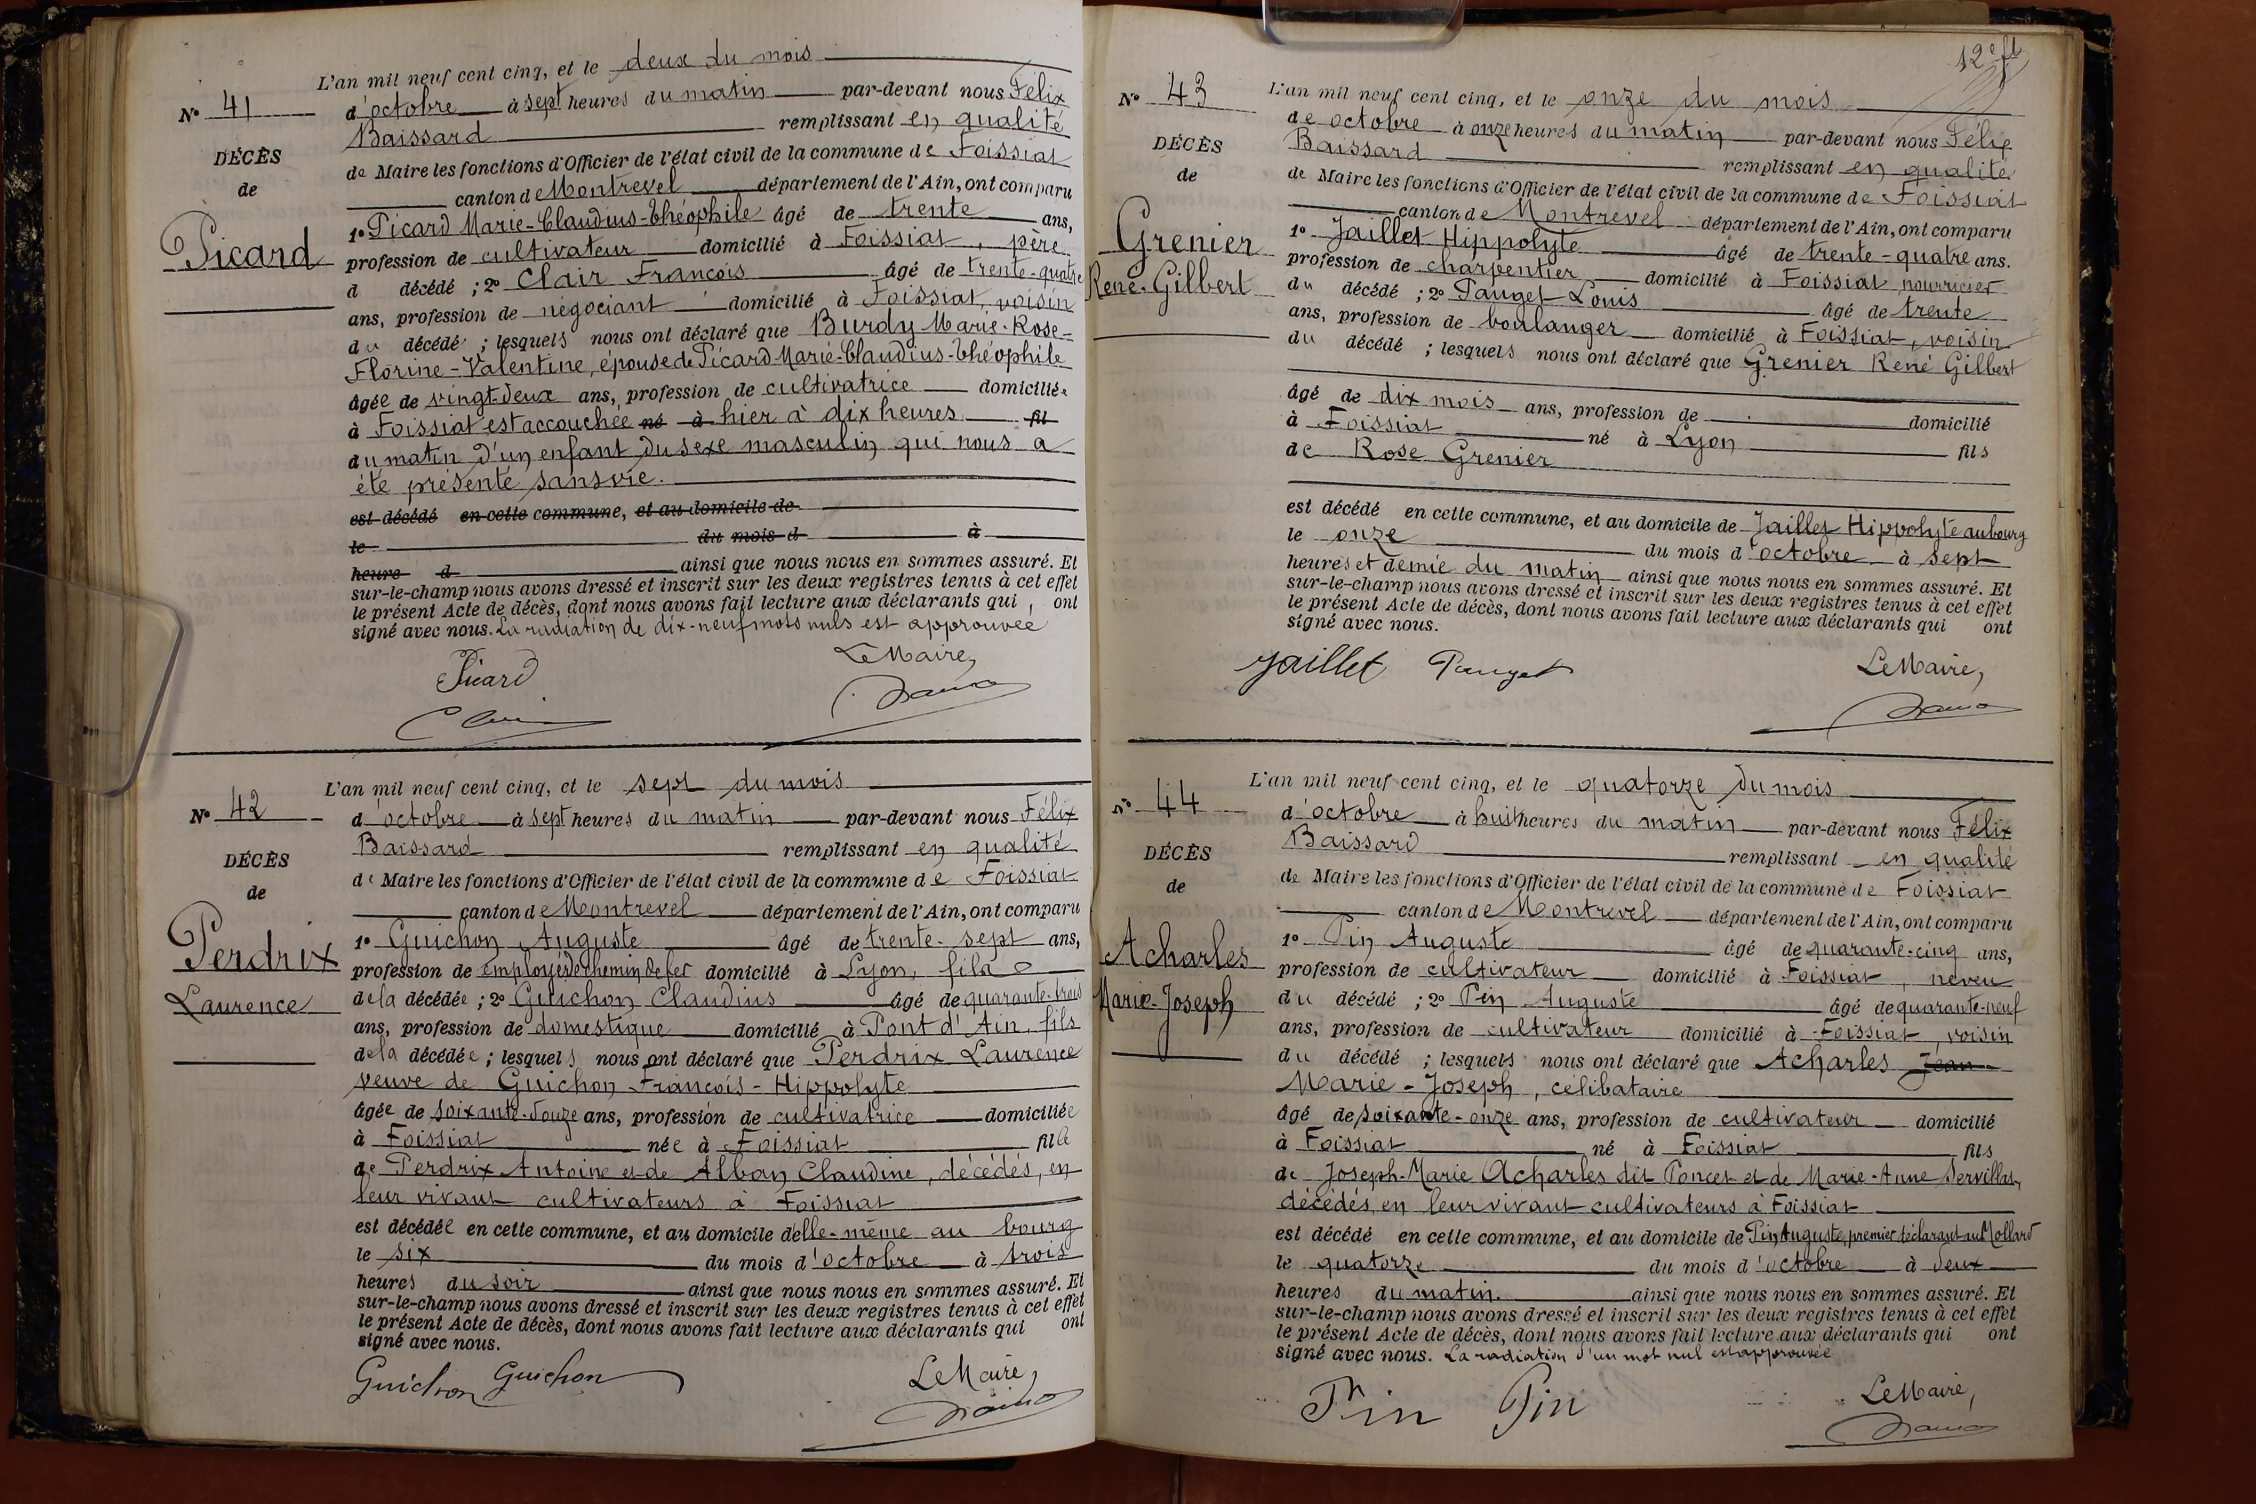 N° 41
DÉCÈS
de
Picard
L'an mil neuf cent cinq, et le deux du mois
d'octobre à sept heures du matin par-devant nous Félix
Baissard remplissant en qualité
de Maire les fonctions d'Officier de l'état civil de la commune de Foissiat
canton de Montrevel département de l'Ain, ont comparu
1° Picard Marie-Claudius-Théophile âgé de trente ans,
profession de cultivateur domicilié à Foissiat, père
d décédé ; 2° Clair François âgé de trente-quatre
ans, profession de négociant domicilié à Foissiat, voisin
du décédé ; lesquels nous ont déclaré que Burdy Marie-Rose-
Florine-Valentine, épouse de Picard Marie-Claudius-Théophile
âgée de vingt-deux ans, profession de cultivatrice domiciliée
à Foissiat est accouchée né à hier à dix heures fil
du matin d'un enfant du sexe masculin qui nous a
été présenté sans vie.
est décédé en cette commune, et au domicile de
le du mois d à
heure d ainsi que nous nous en sommes assuré. Et
sur-le-champ nous avons dressé et inscrit sur les deux registres tenus à cet effet
le présent Acte de décès, dont nous avons fait lecture aux déclarants qui, ont
signé avec nous. La radiation de dix-neuf mots nuls est approuvée
Picard Le Maire,
Clair
N° 42
DÉCÈS
de
Perdrix
Laurence
L'an mil neuf cent cinq, et le sept du mois
d'octobre à sept heures du matin par-devant nous Félix
Baissard remplissant en qualité
de Maire les fonctions d'Officier de l'état civil de la commune de Foissiat
canton de Montrevel département de l'Ain, ont comparu
1° Guichon Auguste âgé de trente-sept ans,
profession de employé de chemin de fer domicilié à Lyon, fils
de la décédée ; 2° Guichon Claudius âgé de quarante-trois
ans, profession de domestique domicilié à Pont d'Ain, fils
de la décédée ; lesquels nous ont déclaré que Perdrix Laurence
veuve de Guichon François-Hippolyte
âgée de soixante-douze ans, profession de cultivatrice domiciliée
à Foissiat née à Foissiat fille
de Perdrix Antoine et de Alban Claudine, décédés, en
leur vivant cultivateurs à Foissiat
est décédée en cette commune, et au domicile d'elle-même au bourg
le six du mois d'octobre à trois
heures du soir ainsi que nous nous en sommes assuré. Et
sur-le-champ nous avons dressé et inscrit sur les deux registres tenus à cet effet
le présent Acte de décès, dont nous avons fait lecture aux déclarants qui ont
signé avec nous.
Guichon Guichon Le Maire,
12e ft
N° 43
DÉCÈS
de
Grenier
René-Gilbert
L'an mil neuf cent cinq, et le onze du mois
de octobre à onze heures du matin par-devant nous Félix
Baissard remplissant en qualité
de Maire les fonctions d'Officier de l'état civil de la commune de Foissiat
canton de Montrevel département de l'Ain, ont comparu
1° Jaillet Hippolyte âgé de trente-quatre ans.
profession de charpentier domicilié à Foissiat, nourricier
du décédé ; 2° Pauget Louis âgé de trente
ans, profession de boulanger domicilié à Foissiat, voisin
du décédé ; lesquels nous ont déclaré que Grenier René Gilbert
âgé de dix mois ans, profession de domicilié
à Foissiat né à Lyon fils
de Rose Grenier
est décédé en cette commune, et au domicile de Jaillet Hippolyte au bourg
le onze du mois d'octobre à sept
heures et demie du matin ainsi que nous nous en sommes assuré. Et
sur-le-champ nous avons dressé et inscrit sur les deux registres tenus à cet effet
le présent Acte de décès, dont nous avons fait lecture aux déclarants qui ont
signé avec nous.
Jaillet Pauget Le Maire,
N° 44
DÉCÈS
de
Acharles
Marie-Joseph
L'an mil neuf cent cinq, et le quatorze du mois
d'octobre à huit heures du matin par-devant nous Félix
Baissard remplissant en qualité
de Maire les fonctions d'Officier de l'état civil de la commune de Foissiat
canton de Montrevel département de l'Ain, ont comparu
1° Pin Auguste âgé de quarante-cinq ans,
profession de cultivateur domicilié à Foissiat, neveu
du décédé ; 2° Pin Auguste âgé de quarante-neuf
ans, profession de cultivateur domicilié à Foissiat, voisin
du décédé ; lesquels nous ont déclaré que Acharles Jean
Marie-Joseph, célibataire
âgé de soixante-onze ans, profession de cultivateur domicilié
à Foissiat né à Foissiat fils
de Joseph-Marie Acharles dit Poncet et de Marie-Anne Servillat,
décédés, en leur vivant cultivateurs à Foissiat
est décédé en cette commune, et au domicile de Pin Auguste, premier déclarant au Mollard
le quatorze du mois d'octobre à deux
heures du matin. ainsi que nous nous en sommes assuré. Et
sur-le-champ nous avons dressé et inscrit sur les deux registres tenus à cet effet
le présent Acte de décès, dont nous avons fait lecture aux déclarants qui ont
signé avec nous. La radiation d'un mot nul est approuvée
Pin Pin Le Maire,